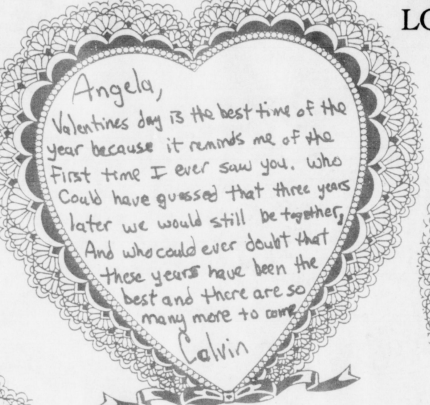 LO
Angela,
Valentines day is the best time of the
year because it reminds me of the
First time I ever saw you. Who
Could have guessed that three years
later we would still be together,
And who could ever doubt that
these years have been the
best and there are so
many more to come
Calvin